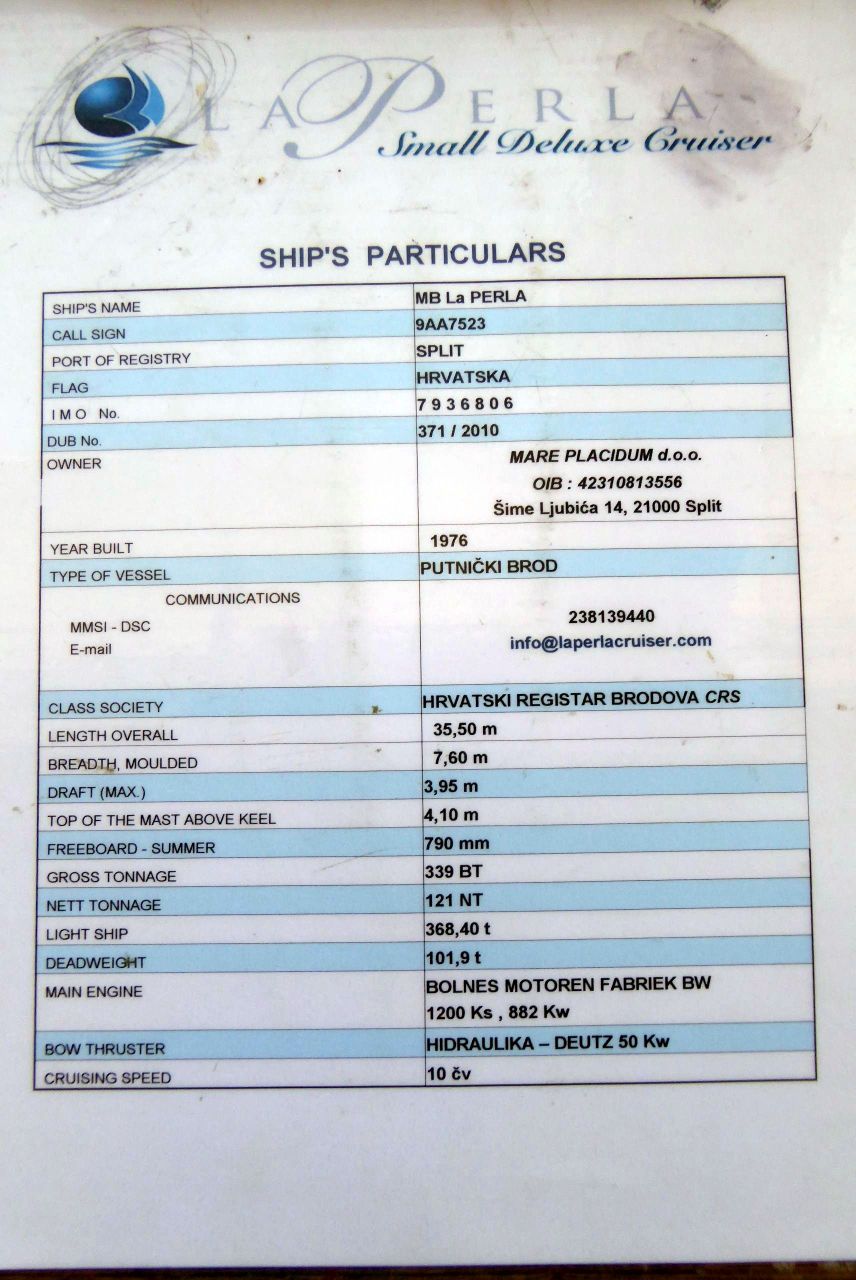 LA PERLA
Small Deluxe Cruiser
SHIP'S PARTICULARS
SHIP'S NAME MB La PERLA
CALL SIGN 9AA7523
PORT OF REGISTRY SPLIT
FLAG HRVATSKA
I M O No. 7 9 3 6 8 0 6
DUB No. 371 / 2010
OWNER MARE PLACIDUM d.o.o.
OIB : 42310813556
Šime Ljubića 14, 21000 Split
YEAR BUILT 1976
TYPE OF VESSEL PUTNIČKI BROD
COMMUNICATIONS
MMSI - DSC 238139440
E-mail info@laperlacruiser.com
CLASS SOCIETY HRVATSKI REGISTAR BRODOVA CRS
LENGTH OVERALL 35,50 m
BREADTH, MOULDED 7,60 m
DRAFT (MAX.) 3,95 m
TOP OF THE MAST ABOVE KEEL 4,10 m
FREEBOARD - SUMMER 790 mm
GROSS TONNAGE 339 BT
NETT TONNAGE 121 NT
LIGHT SHIP 368,40 t
DEADWEIGHT 101,9 t
MAIN ENGINE BOLNES MOTOREN FABRIEK BW
1200 Ks , 882 Kw
BOW THRUSTER HIDRAULIKA – DEUTZ 50 Kw
CRUISING SPEED 10 čv